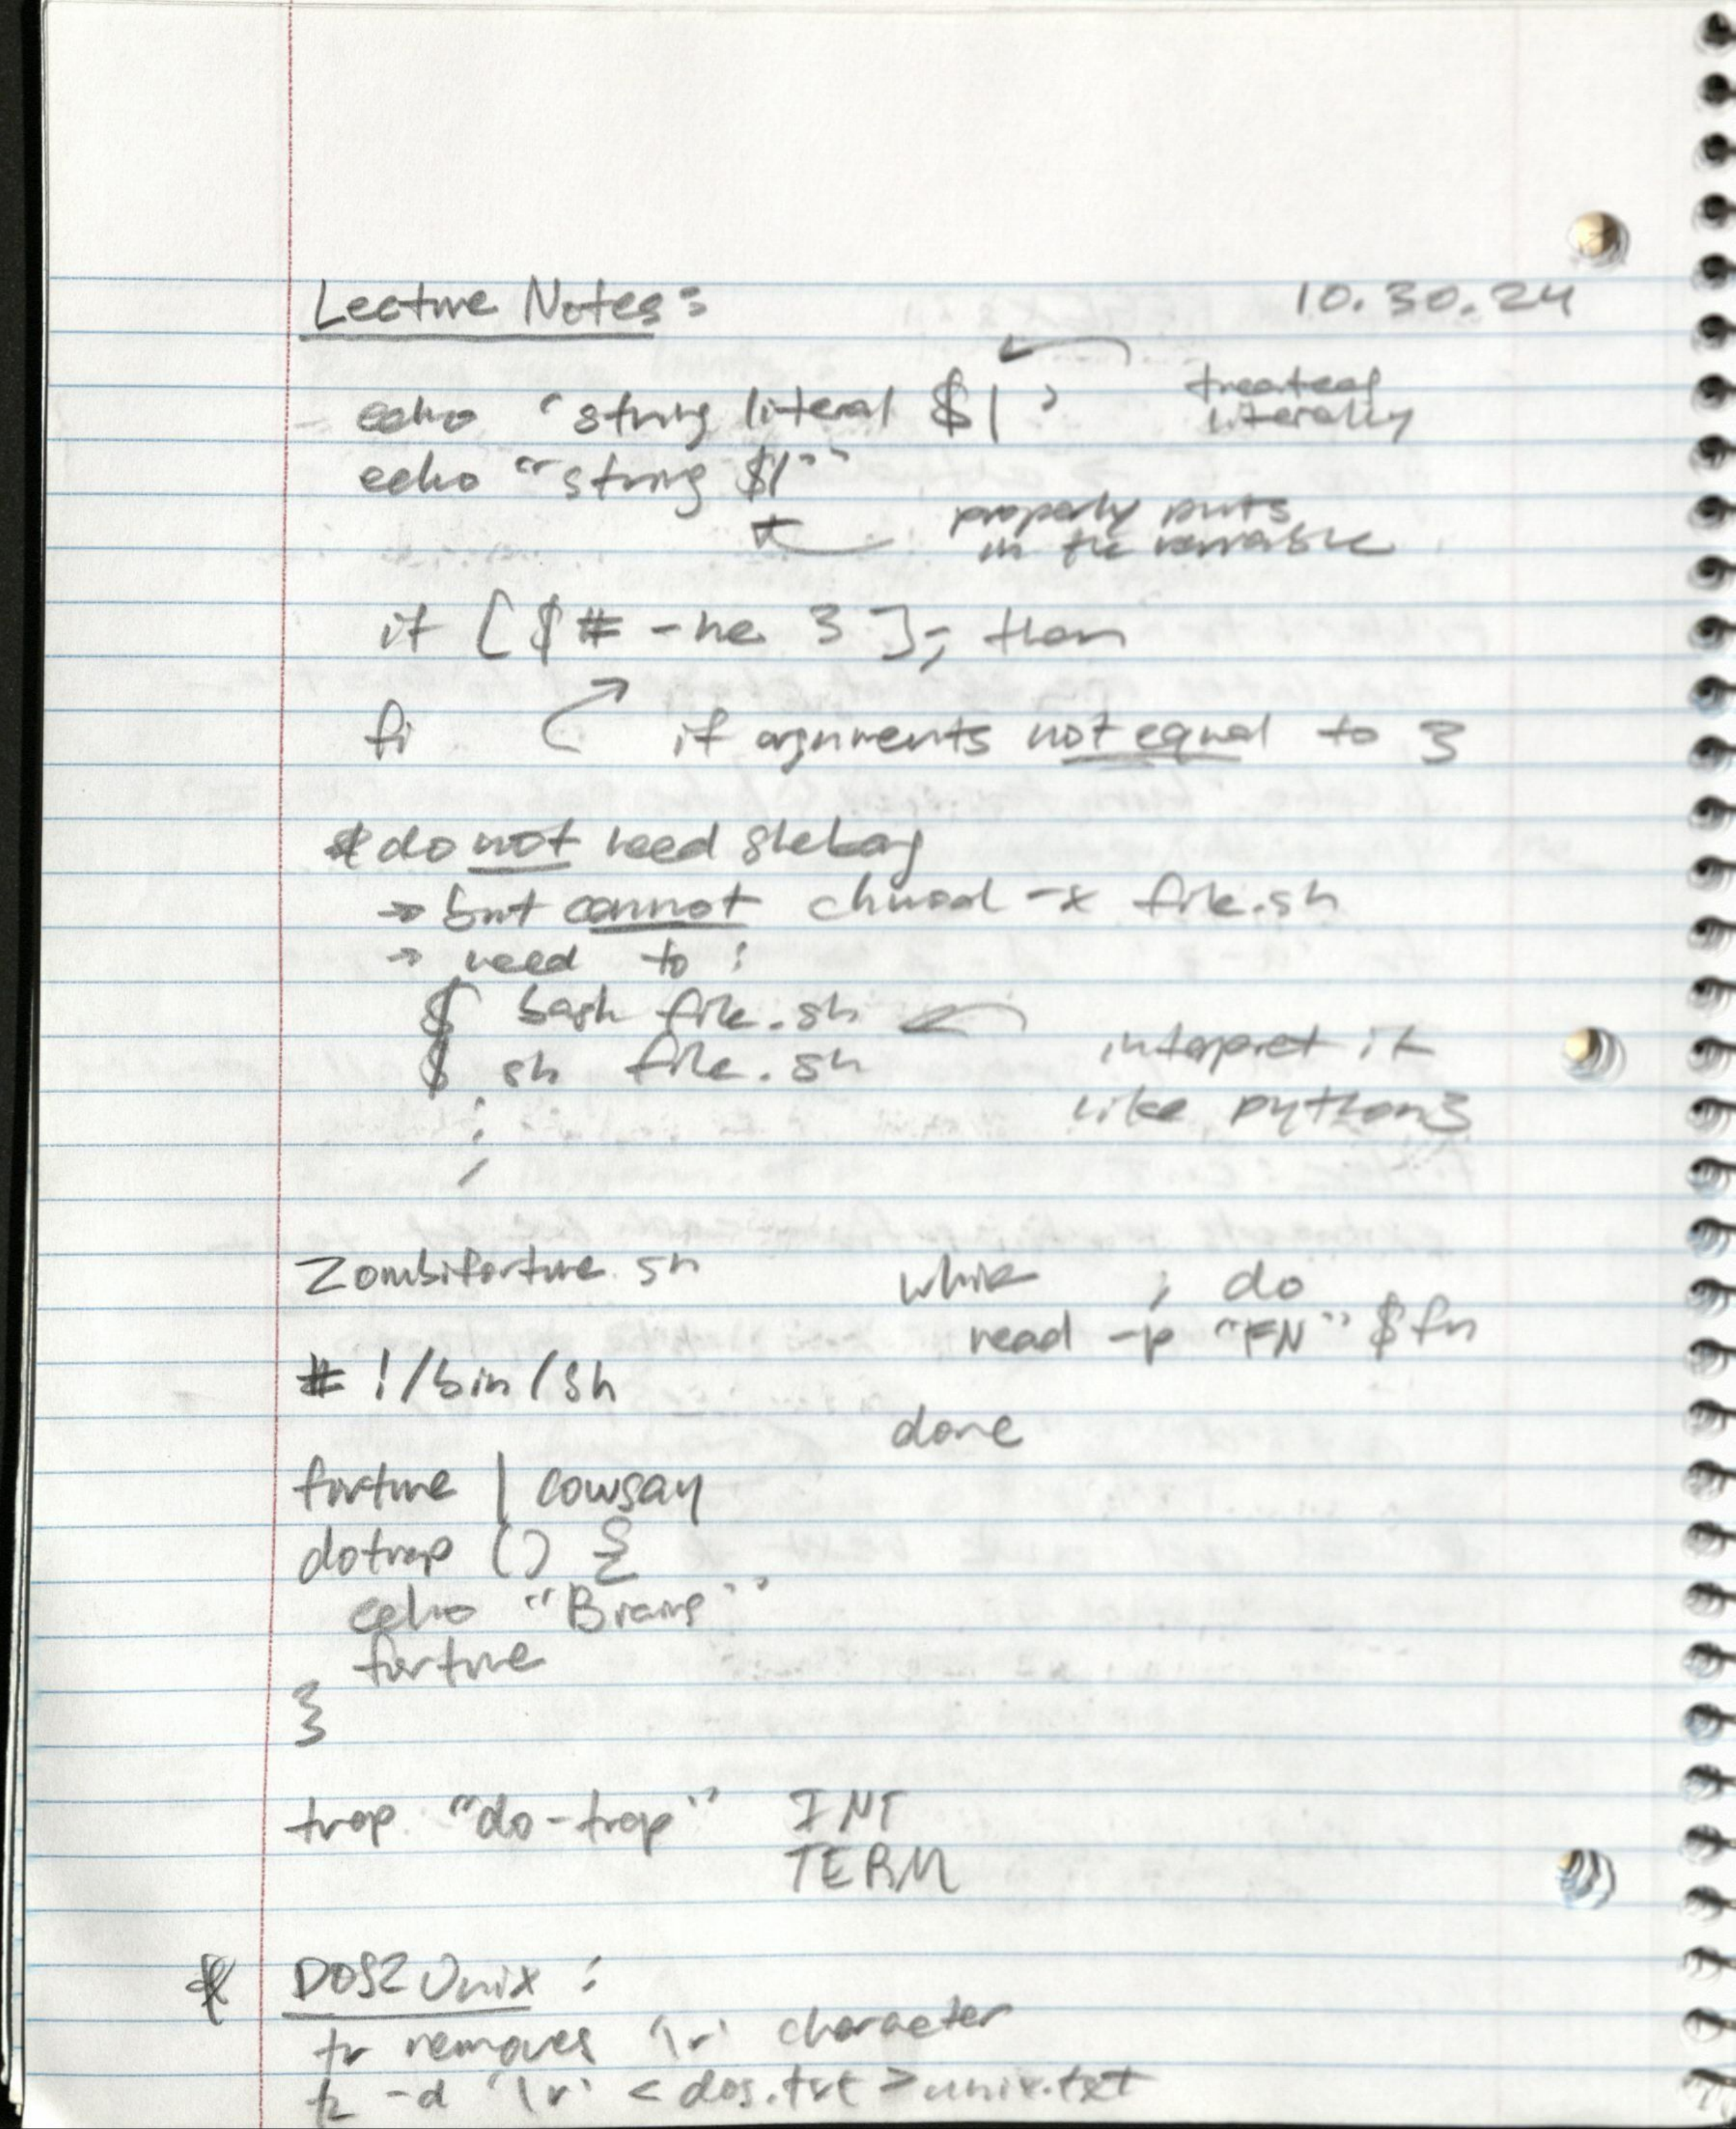 Lecture Notes: 10.30.24
echo 'string literal $1' treated literally
echo "string $1"
properly puts
in the variable
if [ $# -ne 3 ]; then
fi if arguments not equal to 3
* do not need shebang
→ but cannot chmod -x file.sh
→ need to :
$ bash file.sh
$ sh file.sh interpret it
like python3
Zombifortune.sh
while ; do
read -p "FN" $fn
done
#!/bin/sh
fortune | cowsay
dotrap () {
echo "Brains"
fortune
}
trap "do-trap" INT
TERM
* DOS2Unix :
tr removes '\r' character
tr -d '\r' < dos.txt > unix.txt